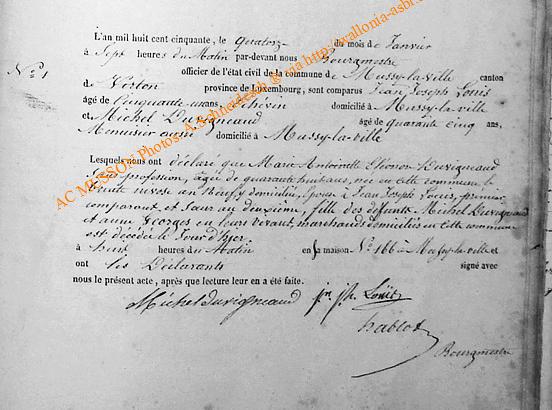 L'an mil huit cent cinquante, le quatorze du mois de Janvier
à Sept heures du Matin par-devant nous Bourgmestre
N° 1
officier de l'état civil de la commune de Mussy-la-ville canton
de Virton province de Luxembourg, sont comparus Jean Joseph Louis
âgé de Cinquante un ans, Echévin domicilié à Mussy-la-ville
et Michel Duvigneaud âgé de quarante cinq ans,
Menuisier aussi domicilié à Mussy-la-ville
Lesquels nous ont déclaré que Marie Antoinette Eléonor Duvigneaud
Sans profession, âgée de quarante huit ans, née en cette commune le
trente nivose an neuf y domiciliée, Epouse à Jean Joseph Louis, premier
comparant et Sœur au deuxième, fille des défunts Michel Duvigneaud
et anne Georges en leur vivant, marchands domiciliés en cette commune
est décédée le Jour d'hier
à heures du Matin en Sa maison N° 166 à Mussy-la-ville et
ont les Déclarants signé avec
nous le présent acte, après que lecture leur en a été faite.
Michel duvigneaud jn jh Louis
hablot
Bourgmestre
AC MUSSON Photos A.Schneidesch @ via http://wallonia-asbl